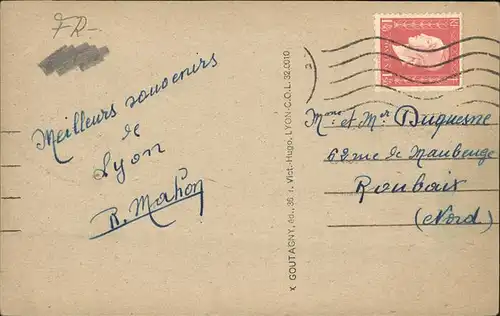 FR-
Meilleurs souvenirs
de
Lyon
R. Mahon
X GOUTAGNY, éd., 36 r. Vict.-Hugo, LYON-C.O.L. 32.0010
Mme et Mr Duquesne
62 rue de Maubeuge
Roubaix
(Nord)